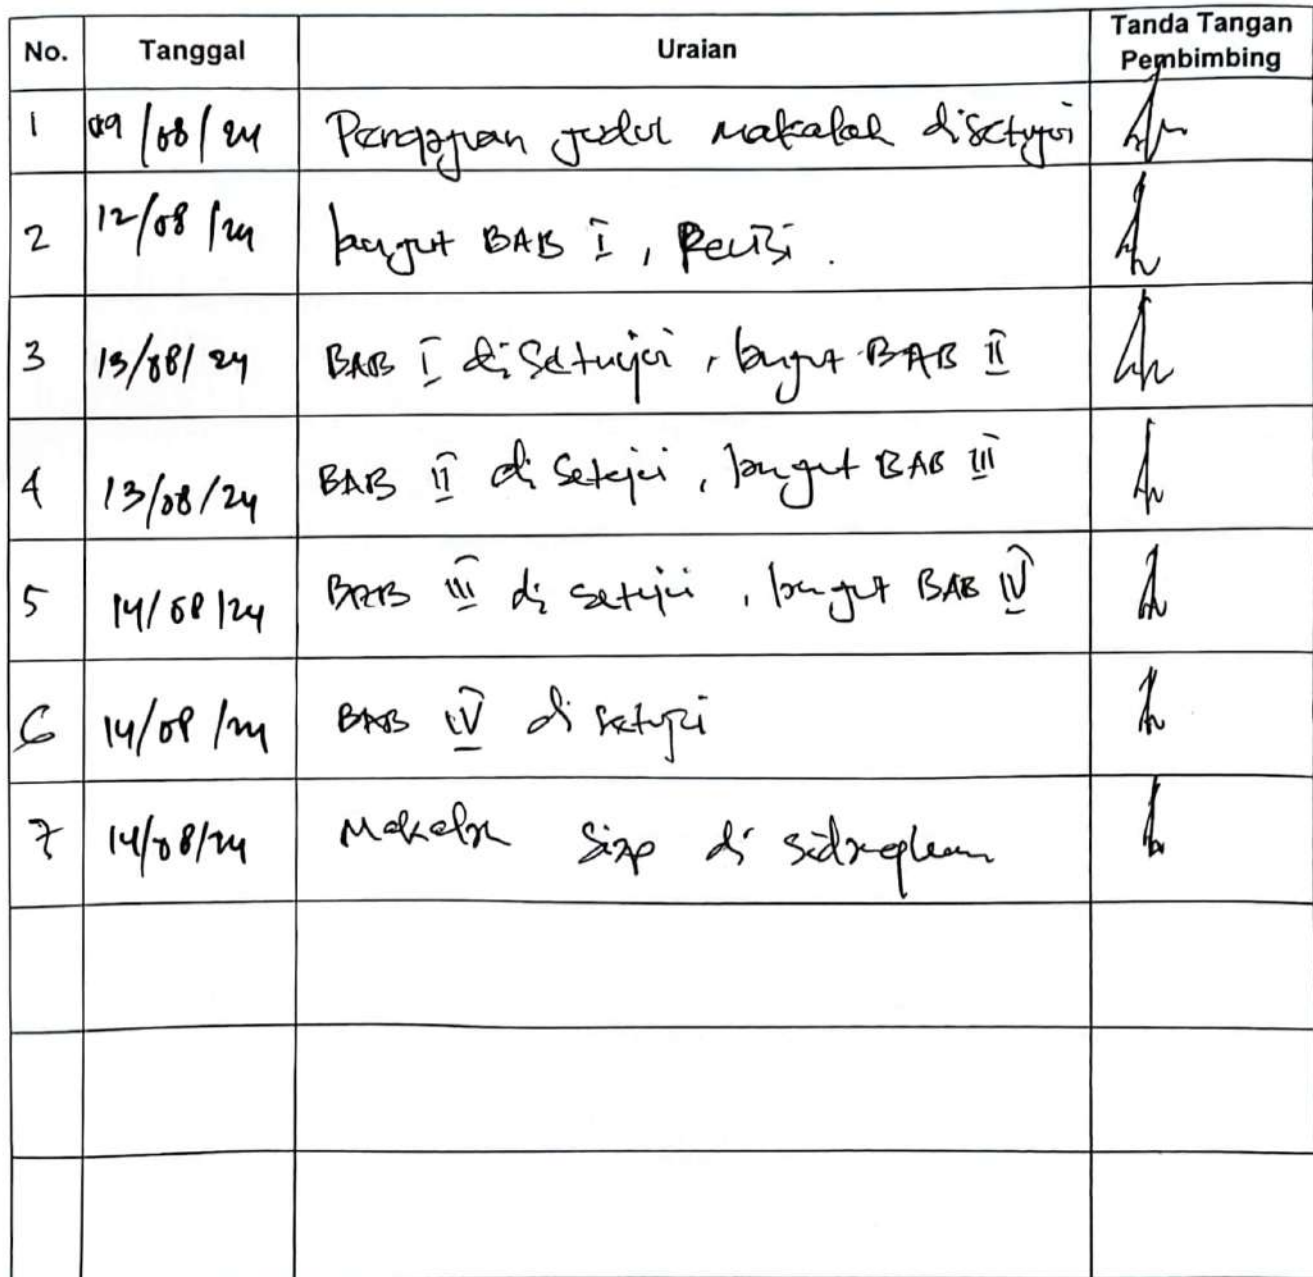 No. Tanggal Uraian Tanda Tangan Pembimbing
1 09/08/24 Pengajuan judul makalah disetujui
2 12/08/24 lanjut BAB I, Revisi.
3 13/08/24 BAB I disetujui, lanjut BAB II
4 13/08/24 BAB II di setujui, lanjut BAB III
5 14/08/24 BAB III di setujui, lanjut BAB IV
6 14/08/24 BAB IV di setujui
7 14/08/24 Makalah siap di sidangkan